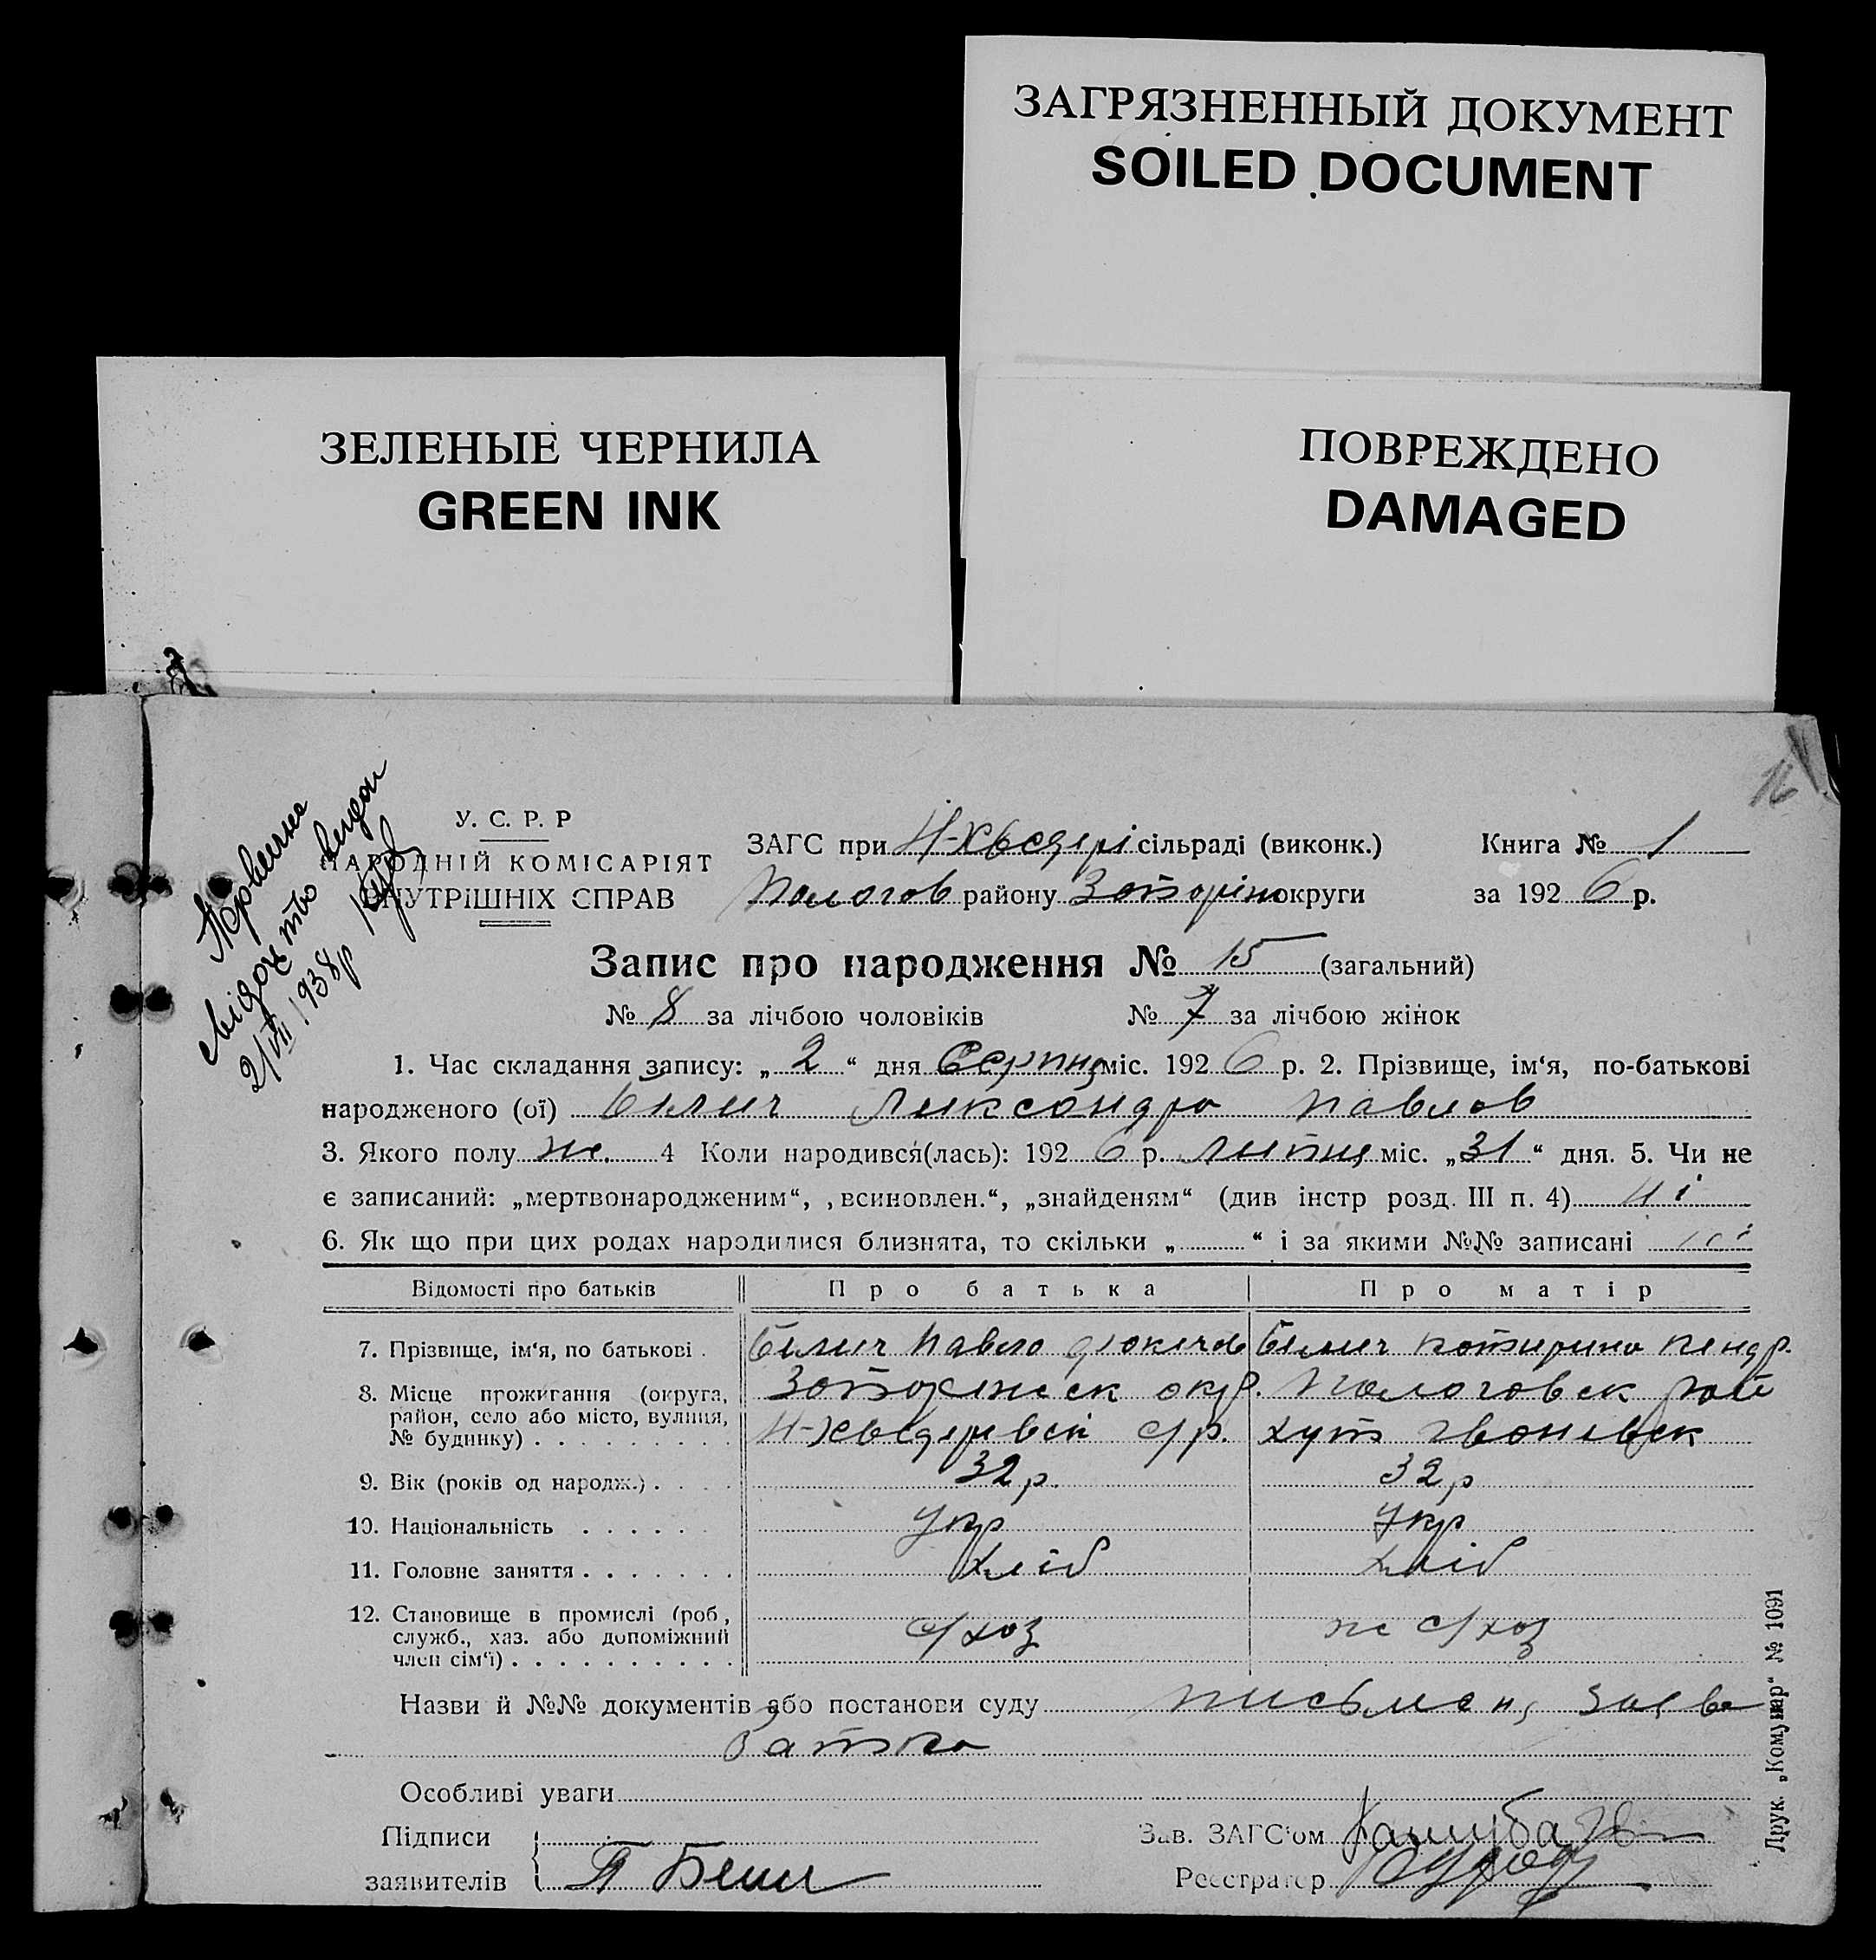 ЗАГРЯЗНЕННЫЙ ДОКУМЕНТ
SOILED DOCUMENT
ЗЕЛЕНЫЕ ЧЕРНИЛА
GREEN INK
ПОВРЕЖДЕНО
DAMAGED
16
свідоцтво видан
2/VII 1938р
У. С. Р. Р
НАРОДНІЙ КОМІСАРІЯТ
ВНУТРІШНІХ СПРАВ
ЗАГС при сільраді (виконк.) Книга № 1
Пологов району округи за 192 6 р.
Запис про народження № 15 (загальний)
№ 8 за лічбою чоловіків № 7 за лічбою жінок
1. Час складання запису: „ 2 “ дня Серпня міс. 192 6 р. 2. Прізвище, ім‘я, по-батькові
народженого (ої) Білич Ликсандра Павлов
3. Якого полу ж. 4 Коли народився(лась): 192 6 р. липня міс. „ 31 “ дня. 5. Чи не
є записаний: „мертвонародженим“, ‚всиновлен.“, „знайденям“ (див інстр розд. III п. 4) Ні
6. Як що при цих родах народилися близнята, то скільки „ “ і за якими №№ записані
Відомості про батьків Про батька Про матір
7. Прізвище, ім‘я, по батькові . Білич Павло Білич
8. Місце прожигання (округа, окр. Пологовск рай
район, село або місто, вулиця, с/р. хут
№ будинку) . . . . . . . . .
9. Вік (років од народж.) . . . . 32 р. 32 р
10. Національність . . . . . . Укр Укр
11. Головне заняття . . . . . . . хліб хліб
12. Становище в промислі (роб, с/хоз с/хоз
служб., хаз. або допоміжний
член сім‘ї) . . . . . . . . . .
Назви й №№ документів або постанови суду письменя заява
Батька
Особливі уваги
Підписи Зав. ЗАГС‘ом
заявителів П Реєстратор
Друк. „Комунар“ № 1091